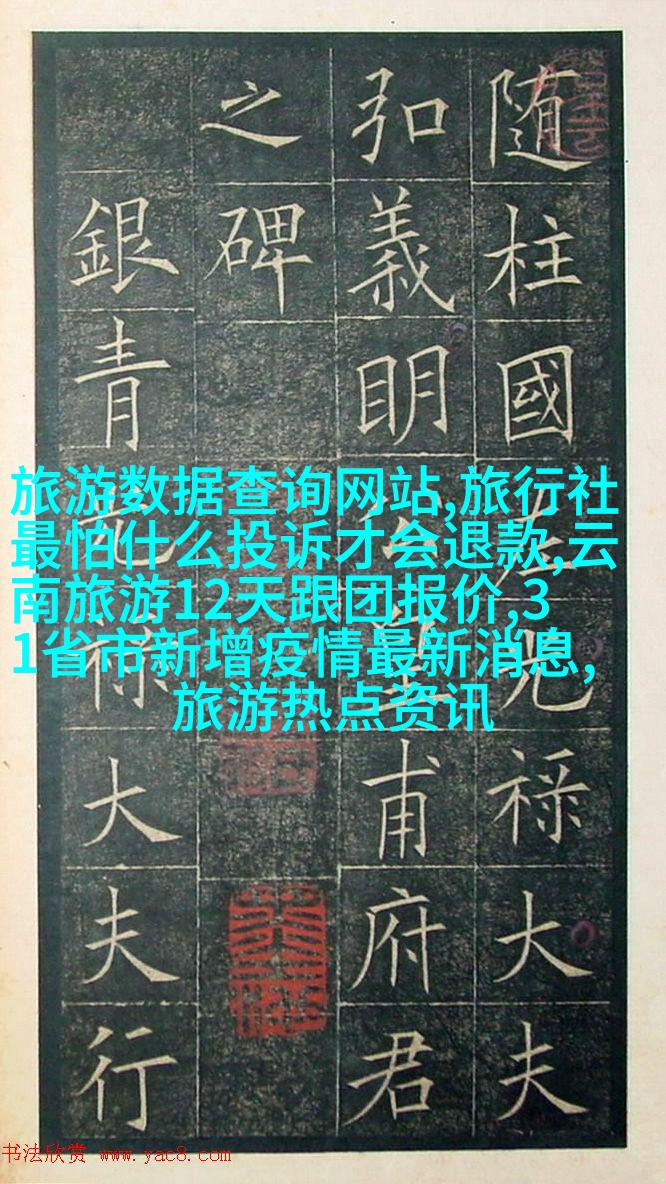 随柱國左光禄大夫
弘義明公皇甫府君
之碑
銀青光禄大夫行
旅游数据查询网站,旅行社
最怕什么投诉才会退款,云
南旅游12天跟团报价,3
1省市新增疫情最新消息,
旅游热点资讯
书法欣赏 www.yac8.com